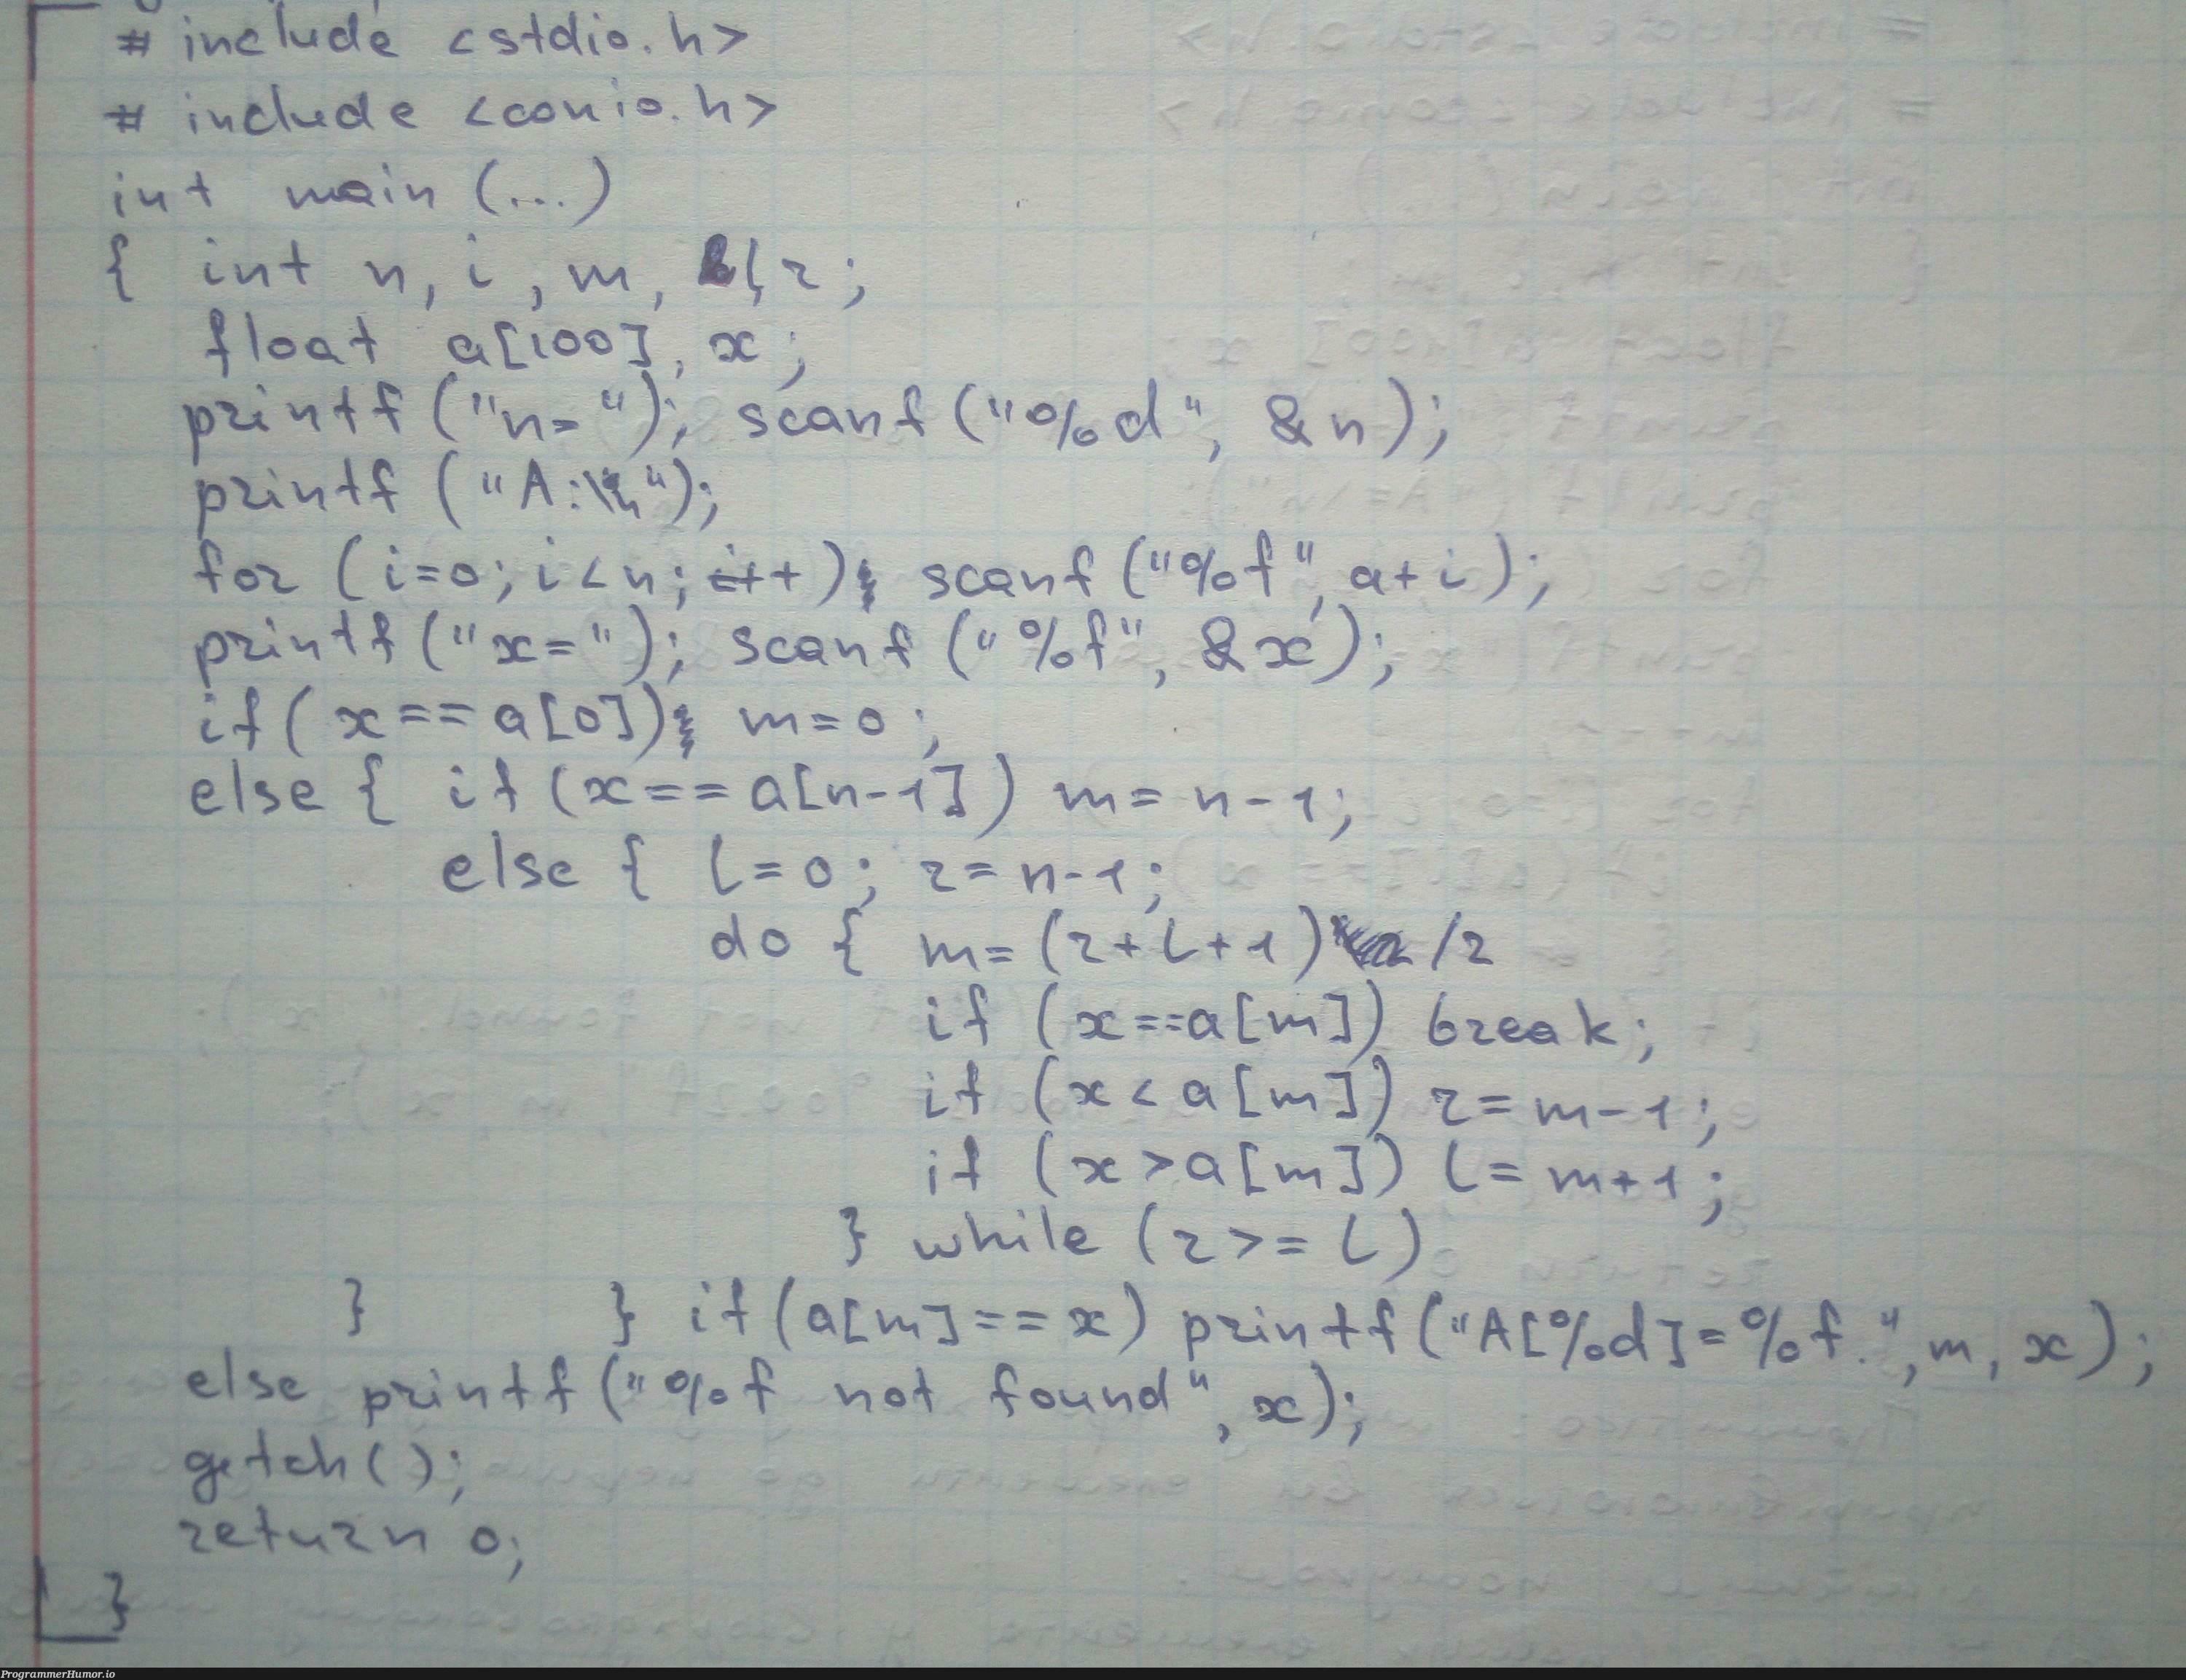 # include <stdio.h>
# include <conio.h>
int main (...)
{ int n, i, m, l, r;
float a[100], x;
printf ("n="); scanf ("%d", &n);
printf ("A:\n");
for (i=0; i<n; i++) scanf ("%f", a+i);
printf ("x="); scanf ("%f", &x);
if (x==a[0]) m=0;
else { if (x==a[n-1]) m=n-1;
else { l=0; r=n-1;
do { m=(r+l+1)/2
if (x==a[m]) break;
if (x<a[m]) r=m-1;
if (x>a[m]) l=m+1;
} while (r>=l)
} } if (a[m]==x) printf ("A[%d]=%f.", m, x);
else printf ("%f not found", x);
getch();
return 0;
}
ProgrammerHumor.io